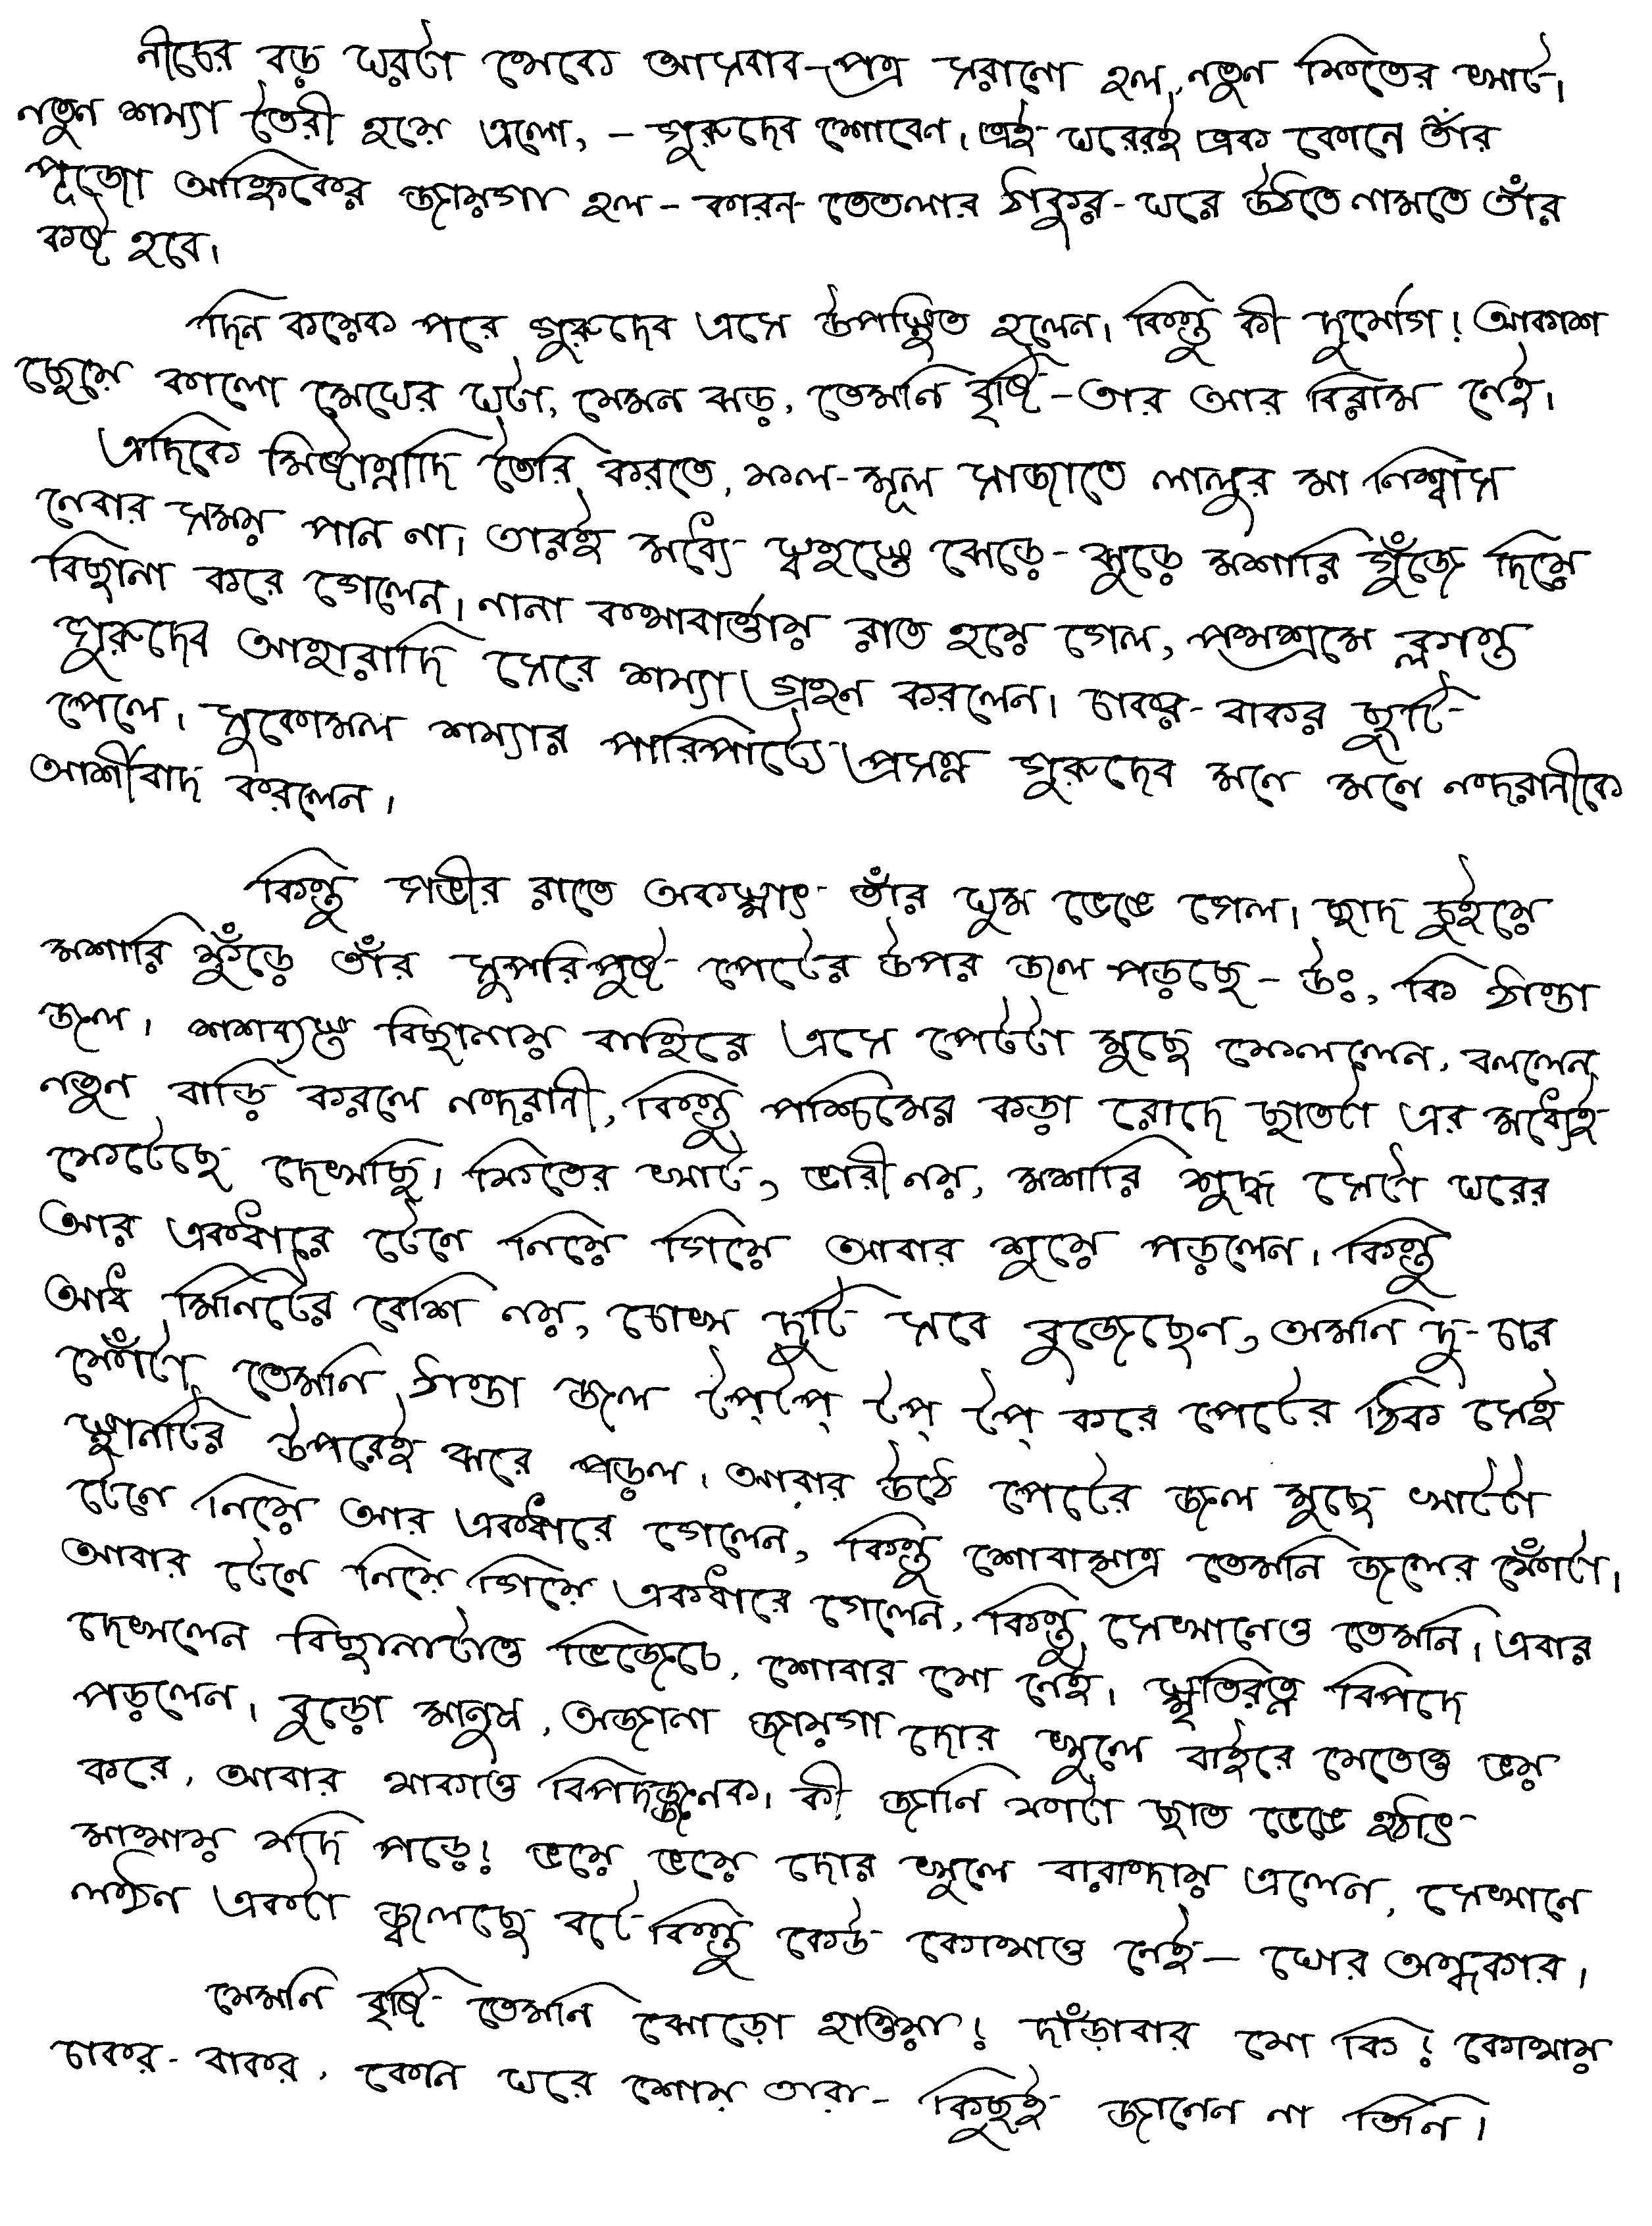 নীচের বড় ঘরটা থেকে আসবাব-পত্র সরানো হল, নতুন ফিতের খাট।
নতুন শয্যা তৈরী হয়ে এলো, - গুরুদেব শোবেন। এই ঘরেরই এক কোনে তাঁর
পূজো আহ্নিকের জায়গা হল - কারন তেতলার ঠাকুর-ঘরে উঠিতে নামতে তাঁর
কষ্ট হবে।
দিন কয়েক পরে গুরুদেব এসে উপস্থিত হলেন। কিন্তু কী দুর্যোগ! আকাশ
ছেয়ে কালো মেঘের ঘটা, যেমন ঝড়, তেমনি বৃষ্টি - তার আর বিরাম নেই।
এদিকে মিষ্টান্নাদি তৈরি করতে, ফল-ফুল সাজাতে লালুর মা নিশ্বাস
নেবার সময় পান না। তারই মধ্যে স্বহস্তে ঝেড়ে-ঝুড়ে মশারি গুঁজে দিয়ে
বিছানা করে গেলেন। নানা কথাবার্ত্তায় রাত হয়ে গেল, পথশ্রমে ক্লান্ত
গুরুদেব আহারাদি সেরে শয্যা গ্রহণ করলেন। চাকর-বাকর ছুটি
পেলে। সুকোমল শয্যার পারিপাট্যে প্রসন্ন গুরুদেব মনে মনে নন্দরানীকে
আর্শীবাদ করলেন।
কিন্তু গভীর রাতে অকস্মাৎ তাঁর ঘুম ভেঙে গেল। ছাদ চুইয়ে
মশারি ফুঁড়ে তাঁর সুপরিপুষ্ট পেটের উপর জল পড়ছে - উঃ, কি ঠান্ডা
জল। শশব্যস্তে বিছানায় বাহিরে এসে পেটটা মুছে ফেললেন, বললেন,
নতুন বাড়ি করলে নন্দরানী, কিন্তু পশ্চিমের কড়া রোদে ছাতটা এর মধ্যেই
ফেটেছে দেখছি। ফিতের খাট, ভারী নয়, মশারি শুদ্ধ সেটা ঘরের
আর একধারে টেনে নিয়ে গিয়ে আবার শুয়ে পড়লেন। কিন্তু
আধ মিনিটের বেশি নয়, চোখ দুটি সবে বুজেছেন, অমনি দু-চার
ফোঁটা তেমনি ঠান্ডা জল টপ্‌টপ্‌ টপ্‌ টপ্‌ করে পেটের ঠিক সেই
স্থানটির উপরেই ঝরে পড়ল। আবার উঠে পেটের জল মুছে খাটটা
টেনে নিয়ে আর একধারে গেলেন, কিন্তু শোবামাত্র তেমনি জলের ফোঁটা।
আবার টেনে নিয়ে গিয়ে একধারে গেলেন, কিন্তু সেখানেও তেমনি। এবার
দেখলেন বিছানাটাও ভিজেচে, শোবার যো নেই। স্মৃতিরত্ন বিপদে
পড়লেন। বুড়ো মানুষ, অজানা জায়গা দোর খুলে বাইরে যেতেও ভয়
করে, আবার থাকাও বিপদজ্জনক। কী জানি ফাটা ছাত ভেঙে হঠাৎ
মাথায় যদি পড়ে! ভয়ে ভয়ে দোর খুলে বারান্দায় এলেন, সেখানে
লন্ঠন একটা জ্বলছে বটে কিন্তু কেউ কোথাও নেই - ঘোর অন্ধকার।
যেমনি বৃষ্টি তেমনি ঝোড়ো হাওয়া! দাঁড়াবার যো কি! কোথায়
চাকর-বাকর, কোন ঘরে শোয় তারা - কিছুই জানেন না তিনি।